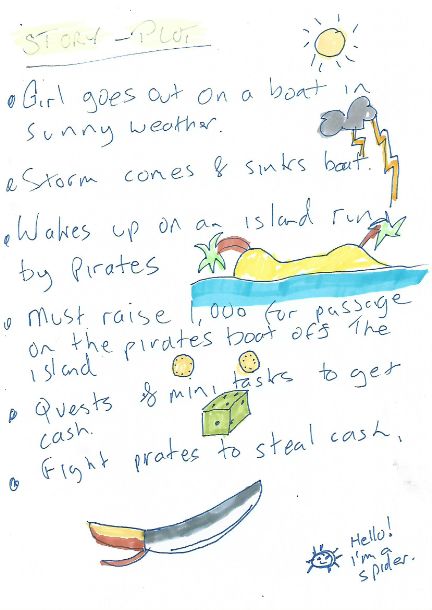 STORY - PLOT
• Girl goes out on a boat in
sunny weather.
• Storm comes & sinks boat.
• Wakes up on an island run
by Pirates
• Must raise 1,000 for passage
on the pirates boat off The
island
• Quests & mini tasks to get
cash.
• Fight prates to steal cash.
Hello!
I'm a
spider.